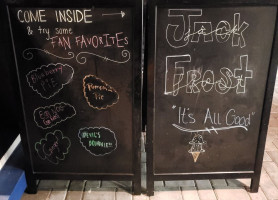 COME INSIDE
& try some
FAN FAVORITES
Blueberry
Pie
Pumpkin
Pie
DEVIL'S
Jack
Frost
"It's All Good"